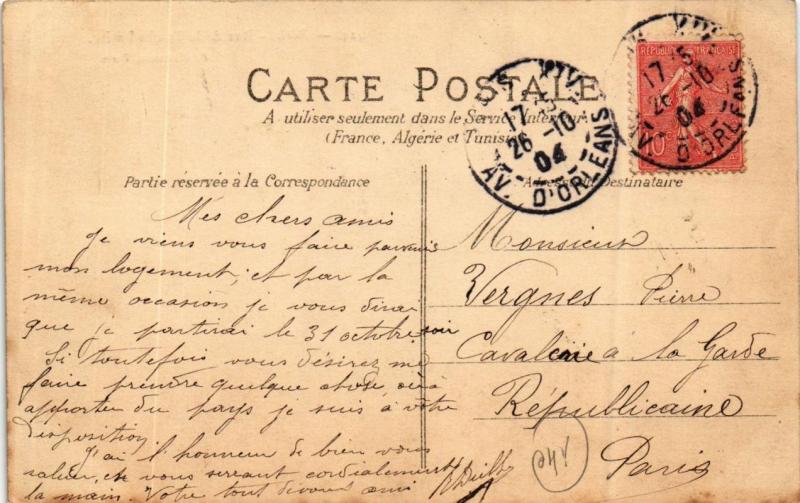 CARTE POSTALE
A utiliser seulement dans le Service Intérieur
(France, Algérie et Tunisie)
Partie réservée à la Correspondance
Mes chers amis
Je viens vous faire
mon logement; et par la
même occasion je vous dirai
que je partirai le 31 octobre soir
Si toutefois vous désirez me
faire prendre quelque chose, ou à
apporter du pays je suis à votre
disposition
J'ai l'honneur de bien vous
saluer, et vous serrant cordialement
la main. Votre tout dévoué ami
Adresse du Destinataire
Monsieur
Vergnes Pierre
Cavalerie a la Garde
Républicaine
Paris
04Y
17
26 -10
04
AV. D'ORLEANS
RÉPUBLIQUE FRANÇAISE
10
17
26 10
04
AV. D'ORLEANS